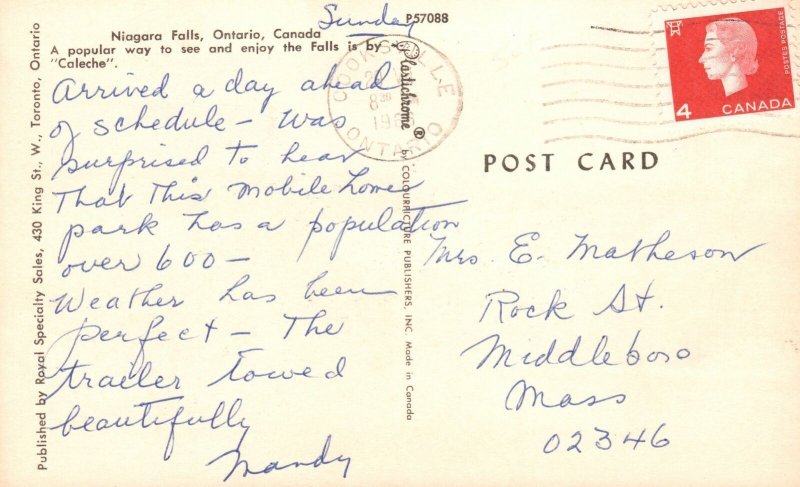 Sunday
P57088
Niagara Falls, Ontario, Canada
A popular way to see and enjoy the Falls is by
"Caleche".
Arrived a day ahead
of schedule - was
surprised to hear
that this mobile home
park has a population
over 600 -
Weather has been
perfect - The
trailer towed
beautifully
Mandy
Published by Royal Specialty Sales, 430 King St., W., Toronto, Ontario
Plastichrome ® by COLOURPICTURE PUBLISHERS, INC. Made in Canada
COOKSVILLE
ONTARIO
POSTES POSTAGE
4 CANADA
POST CARD
Mrs. E. Matheson
Rock St.
Middleboro
Mass
02346